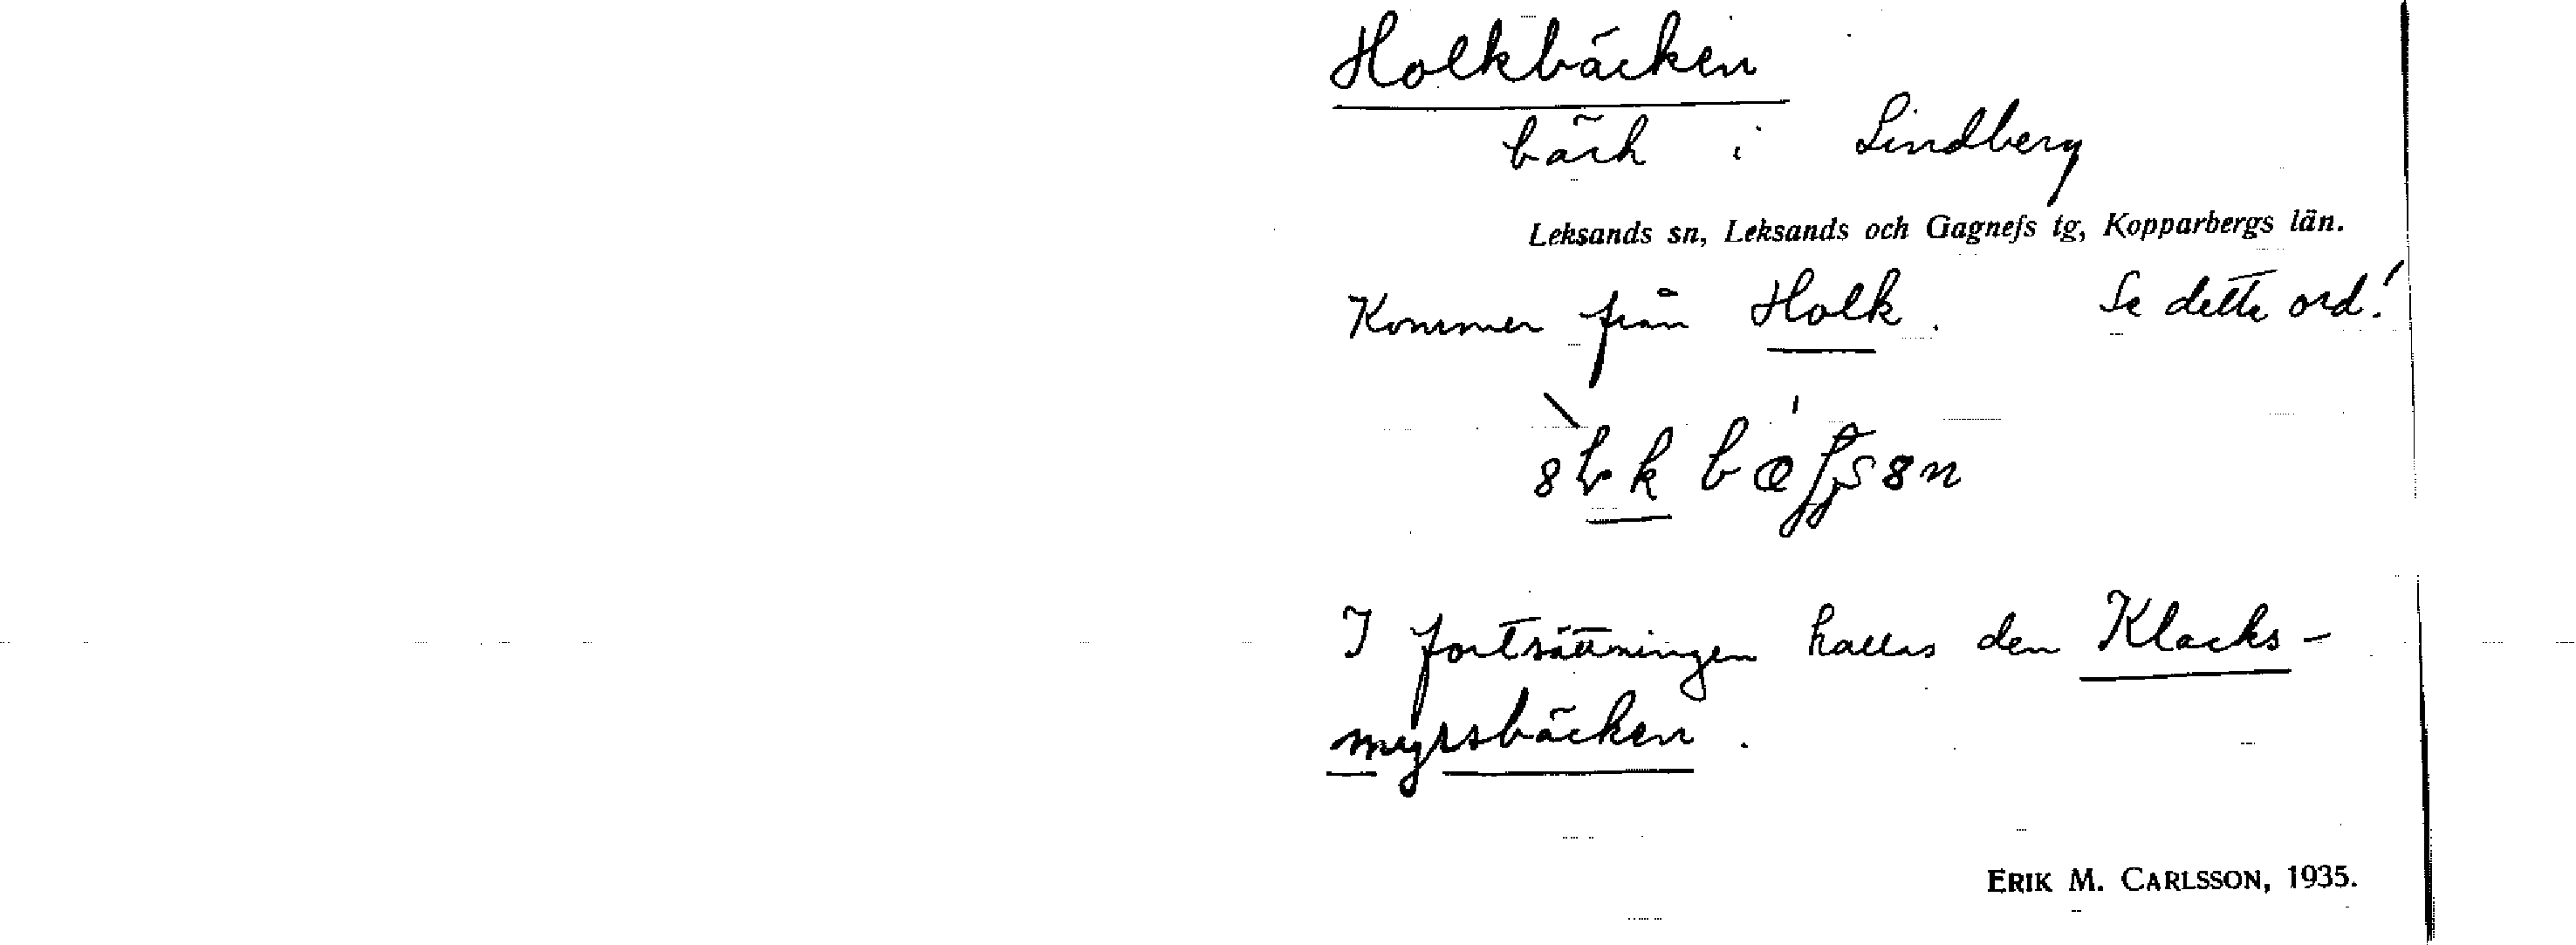 Holkbäcken
bäck i Lindberg
Leksands sn, Leksands och Gagnefs tg, Kopparbergs län.
Kommer från Holk. Se detta ord!
I fortsättningen kallas den Klacks-
myrsbäcken.
ERIK M. CARLSSON, 1935.